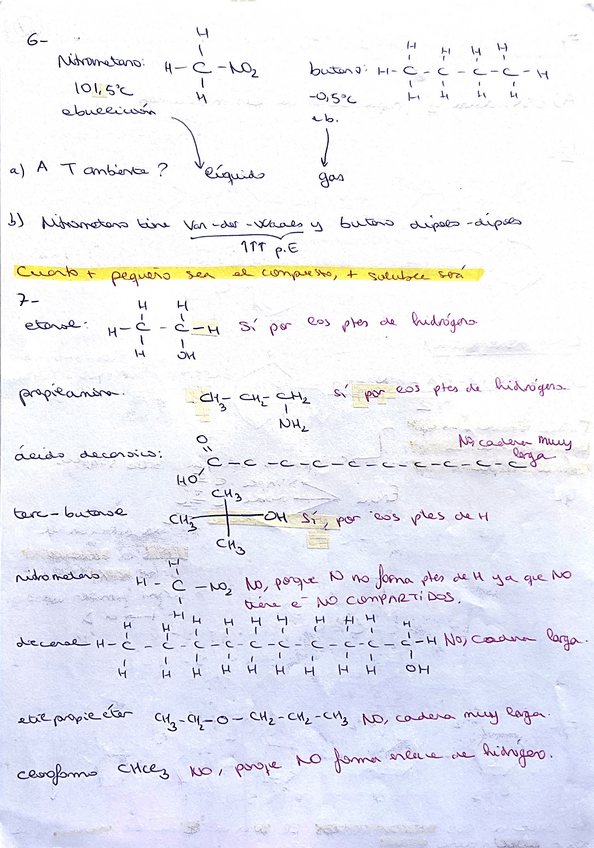 6-
Nitrometano: H - C - NO2 butano: H - C - C - C - C - H
101,5°C -0,5°C
ebullición eb.
a) A T ambiente? líquido gas
b) Nitrometano tiene Van-der-Waals y butano dipolo-dipolo
↑↑↑ p.E
Cuanto + pequeño sea el compuesto, + soluble será
7-
H H
etanol: H - C - C - H Sí por los ptes de hidrógeno
H OH
propilamina: CH3 - CH2 - CH2 sí por los ptes de hidrógeno
NH2
ácido decanoico: O NO, cadena muy larga
C - C - C - C - C - C - C - C - C - C
HO
CH3
terc-butanol CH3 OH Sí, por los ptes de H
CH3
nitrometano H - C - NO2 NO, porque N no forma ptes de H ya que NO
tiene e- NO COMPARTIDOS.
H H H H H H H H H H
decanol H - C - C - C - C - C - C - C - C - C - C - H No, cadena larga.
H H H H H H H H H OH
etilpropiléter CH3 - CH2 - O - CH2 - CH2 - CH3 NO, cadena muy larga.
cloroformo CHCl3 NO, porque NO forma enlace de hidrógeno.